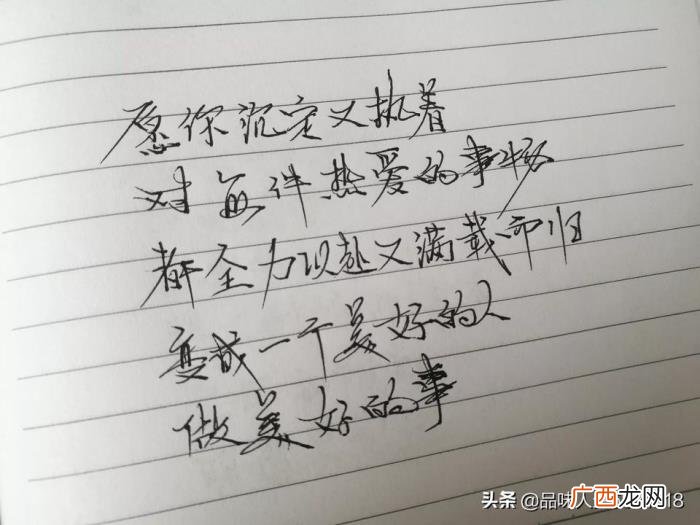 愿你沉定又执着
对每件热爱的事物
都全力以赴又满载而归
变成一个美好的人
做美好的事
头条 @品味人
18
广西龙网